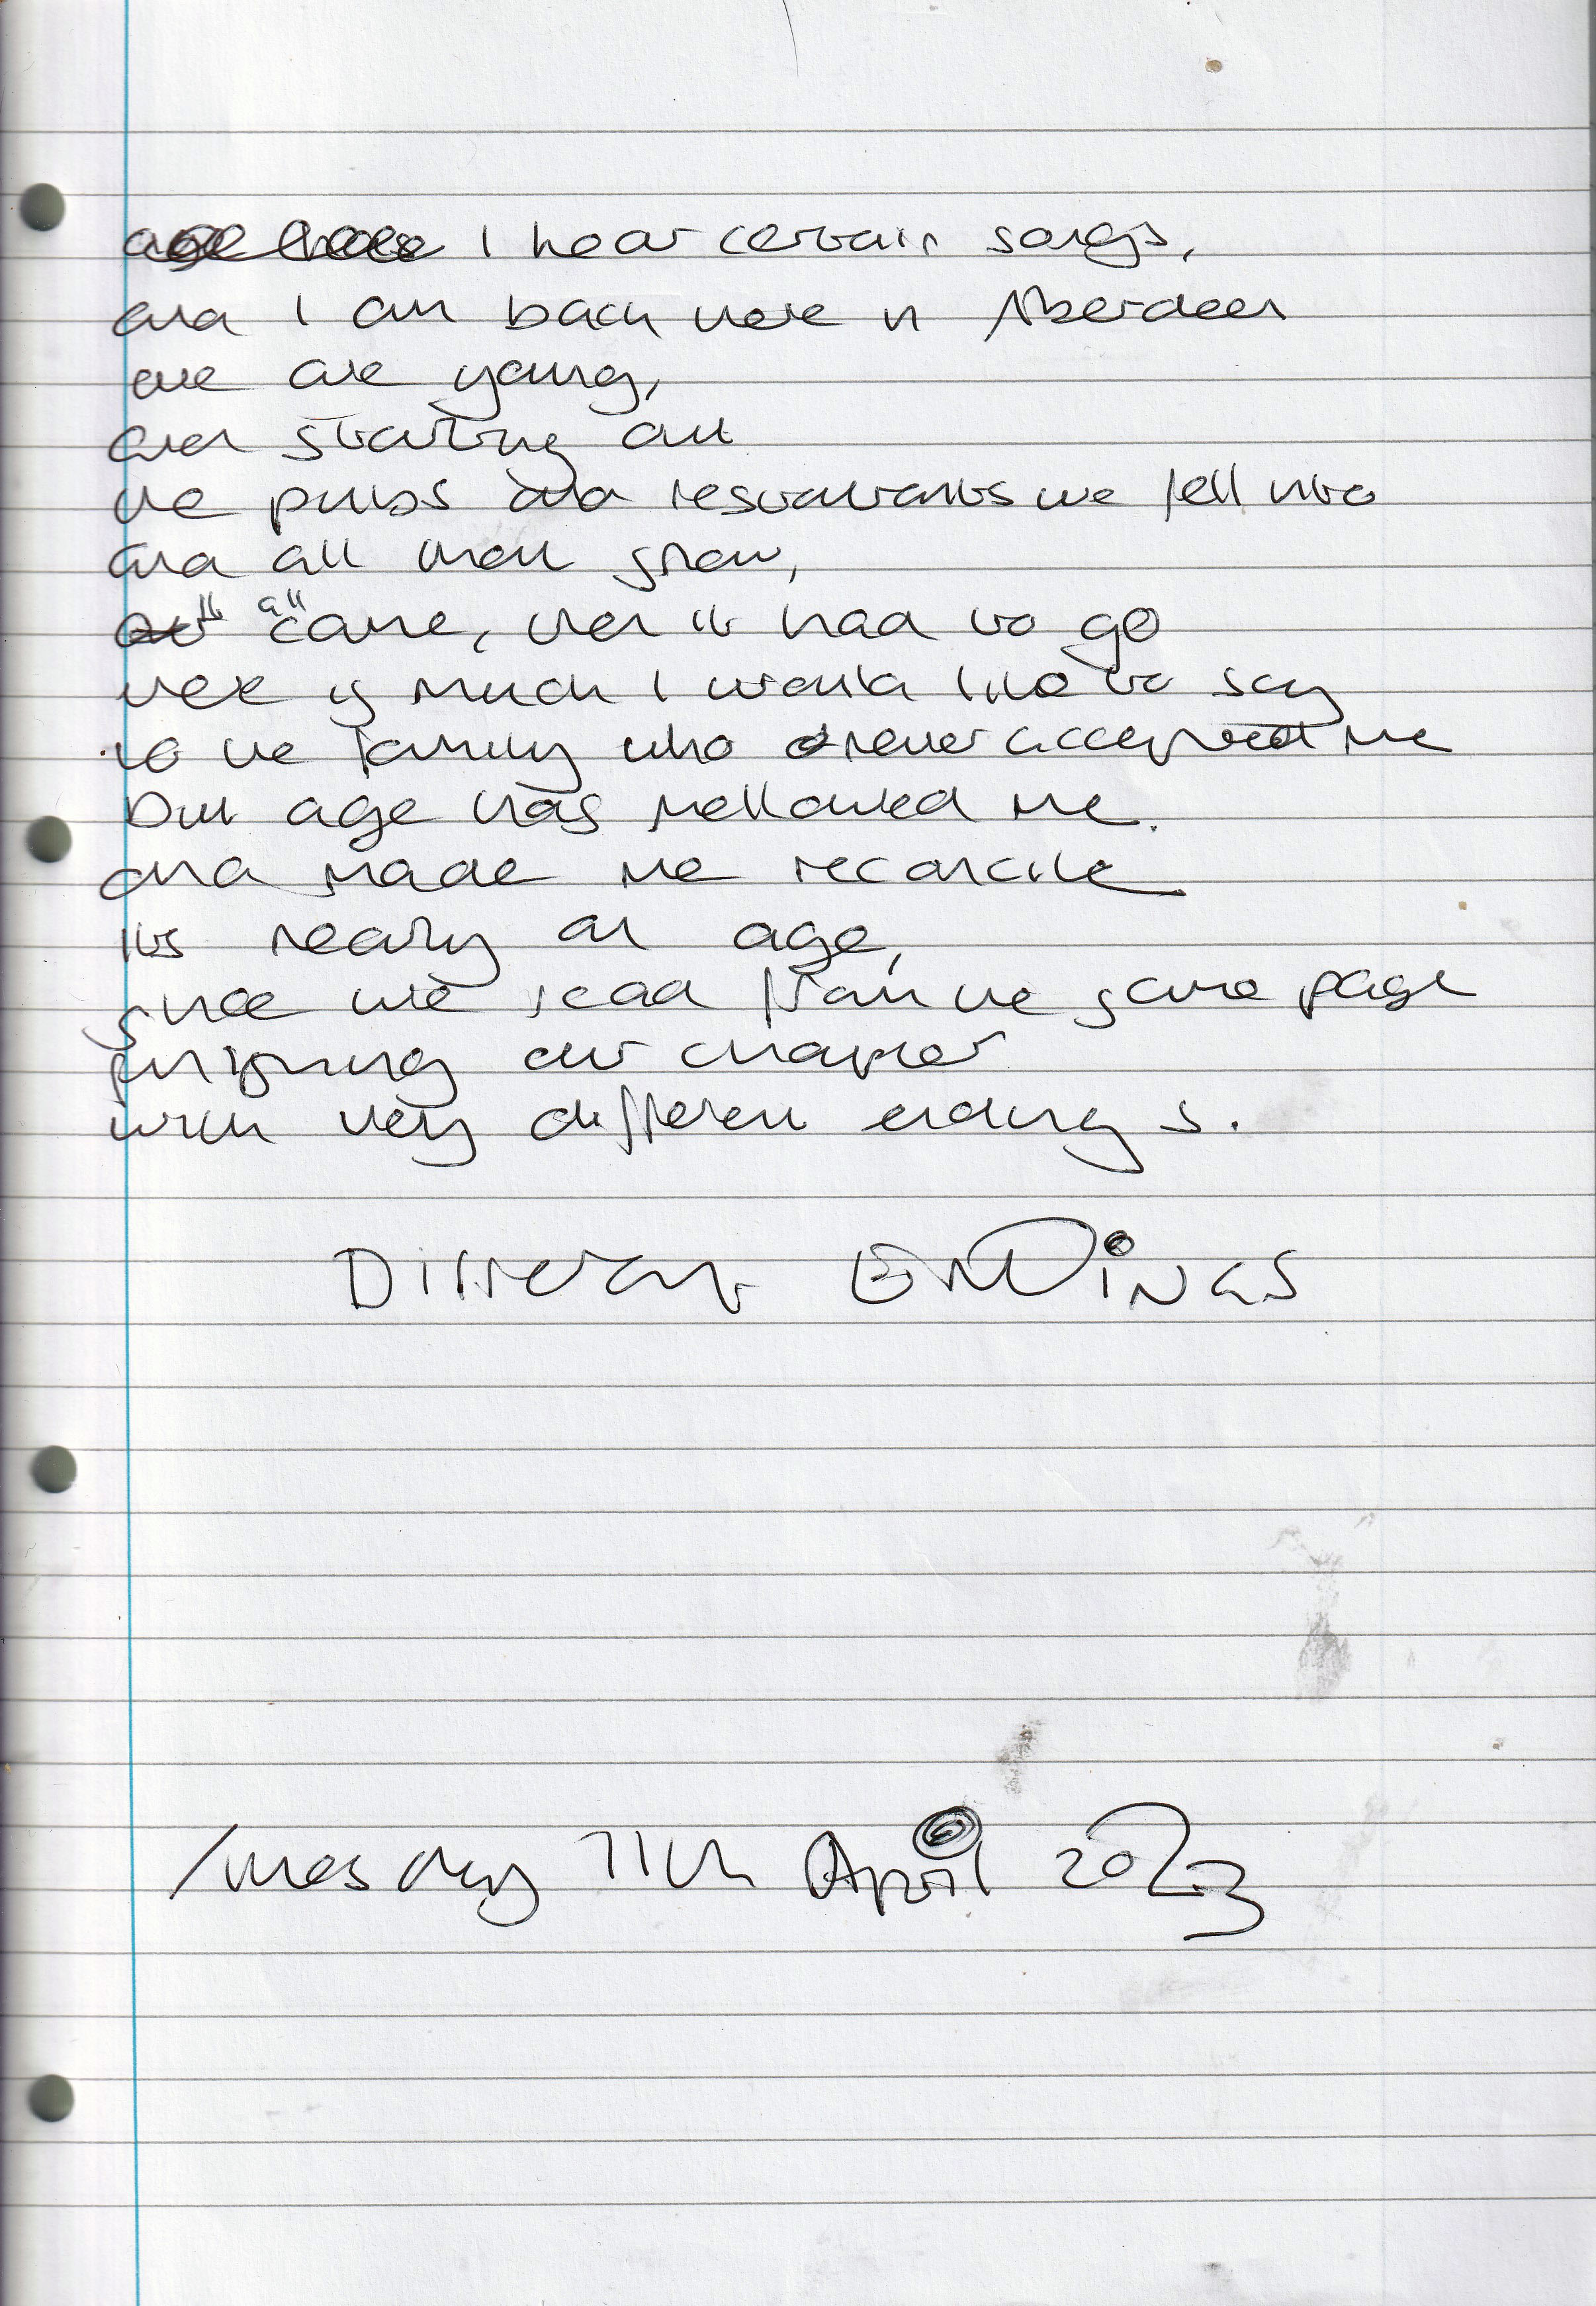 I hear certain songs,
and I am back there in Aberdeen
we are young,
and starting out
the pubs and restaurants we fell into
and all that snow,
it came, then it had to go
there is much I would like to say
to the family who never accepted me
but age has mellowed me.
and made me reconcile
its really an age,
since we read from the same page
finishing our chapter
with very different endings.
Different ENDINGS
Tuesday 11th April 2023